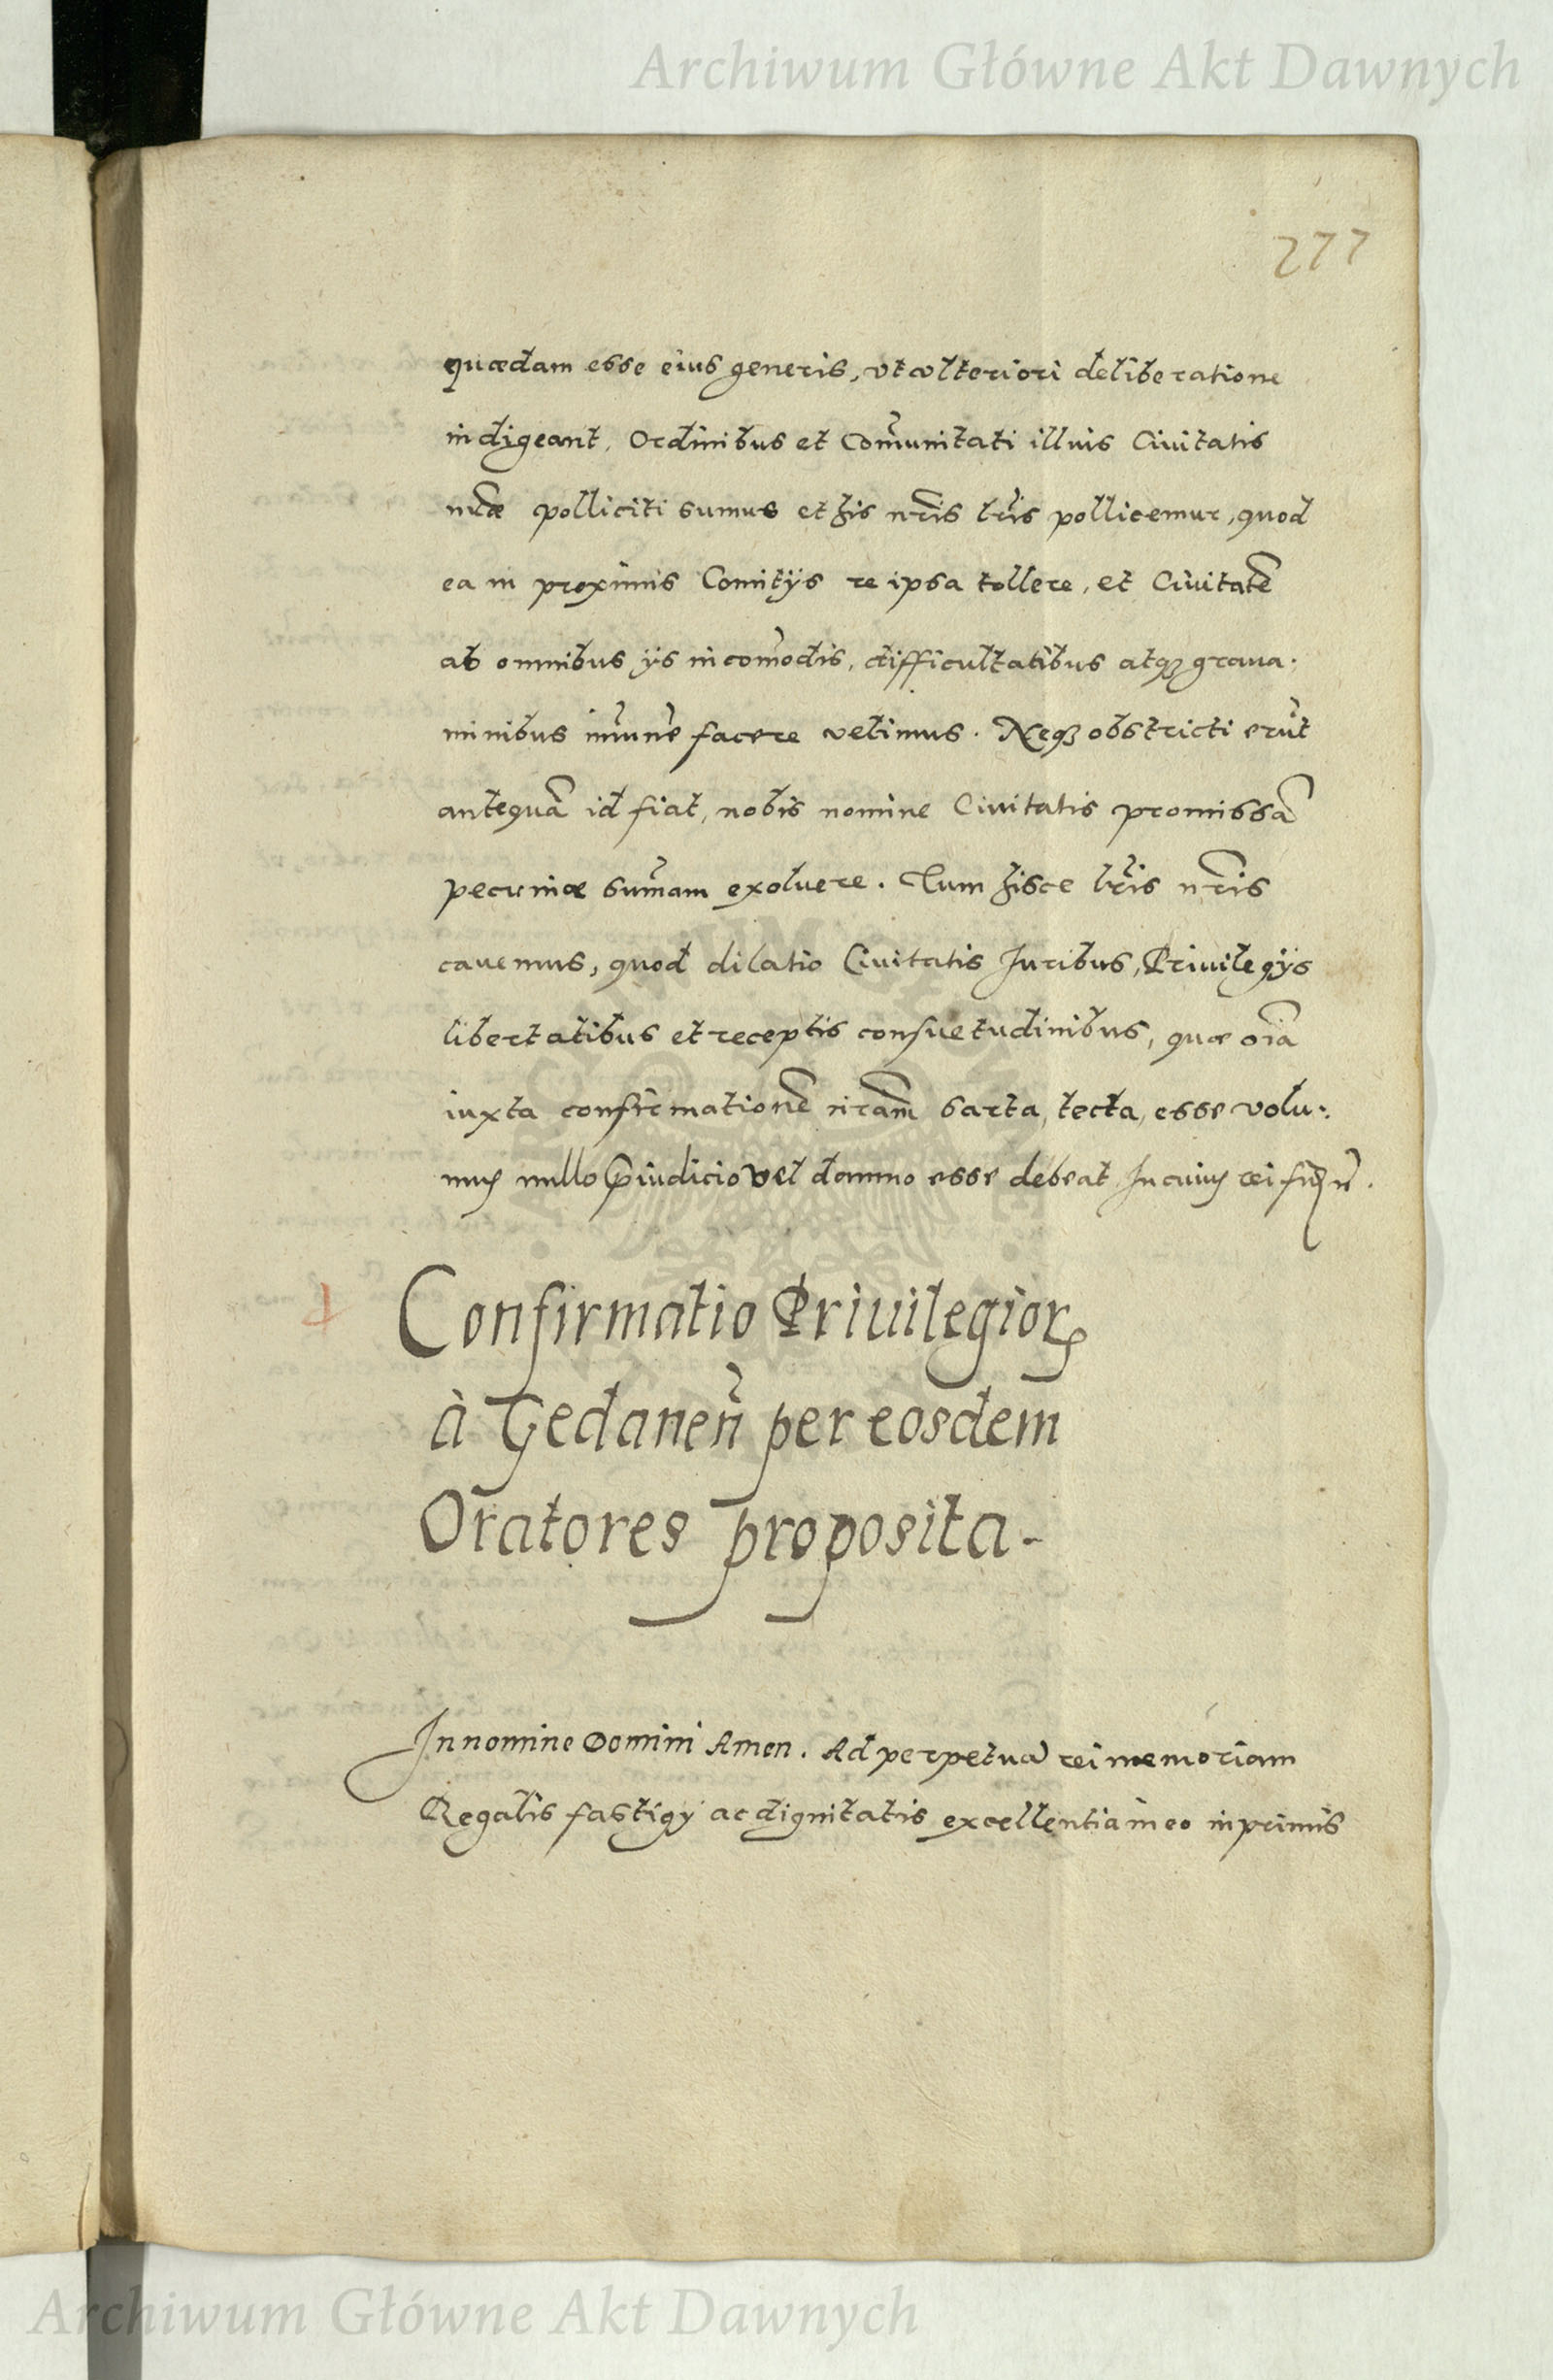 Archiwum Główne Akt Dawnych
277
quædam esse eius generis, vt vlteriori deliberatione
indigeant, Ordinibus et Com̃unitati illius Ciuitatis
nr̃æ polliciti sumus et his nr̃is lr̃is pollicemur, quod
ea in proximis Comitijs re ipsa tollere, et Ciuitatẽ
ab omnibus ijs incom̃odis, difficultatibus atqȝ graua:
minibus im̃unẽ facere velimus. Neqȝ obstricti erũt
antequã id fiat, nobis nomine Ciuitatis promissã
pecuniæ sum̃am exoluere. Tum hisce lr̃is nr̃is
cauemus, quod dilatio Ciuitatis Juribus, Priuilegijs
libertatibus et receptis consuetudinibus, quæ oĩa
iuxta confirmationẽ nr̃am sarta, tecta, esse volu:
mus nullo p̃iudicio vel damno esse debeat In cuius rei
Confirmatio Priuilegiorꝝ
à Gedaneñ per eosdem
Oratores proposita.
In nomine Domini Amen. Ad perpetuã rei memoriam
Regalis fastigij ac dignitatis excellentia in eo inprimis
Archiwum Główne Akt Dawnych